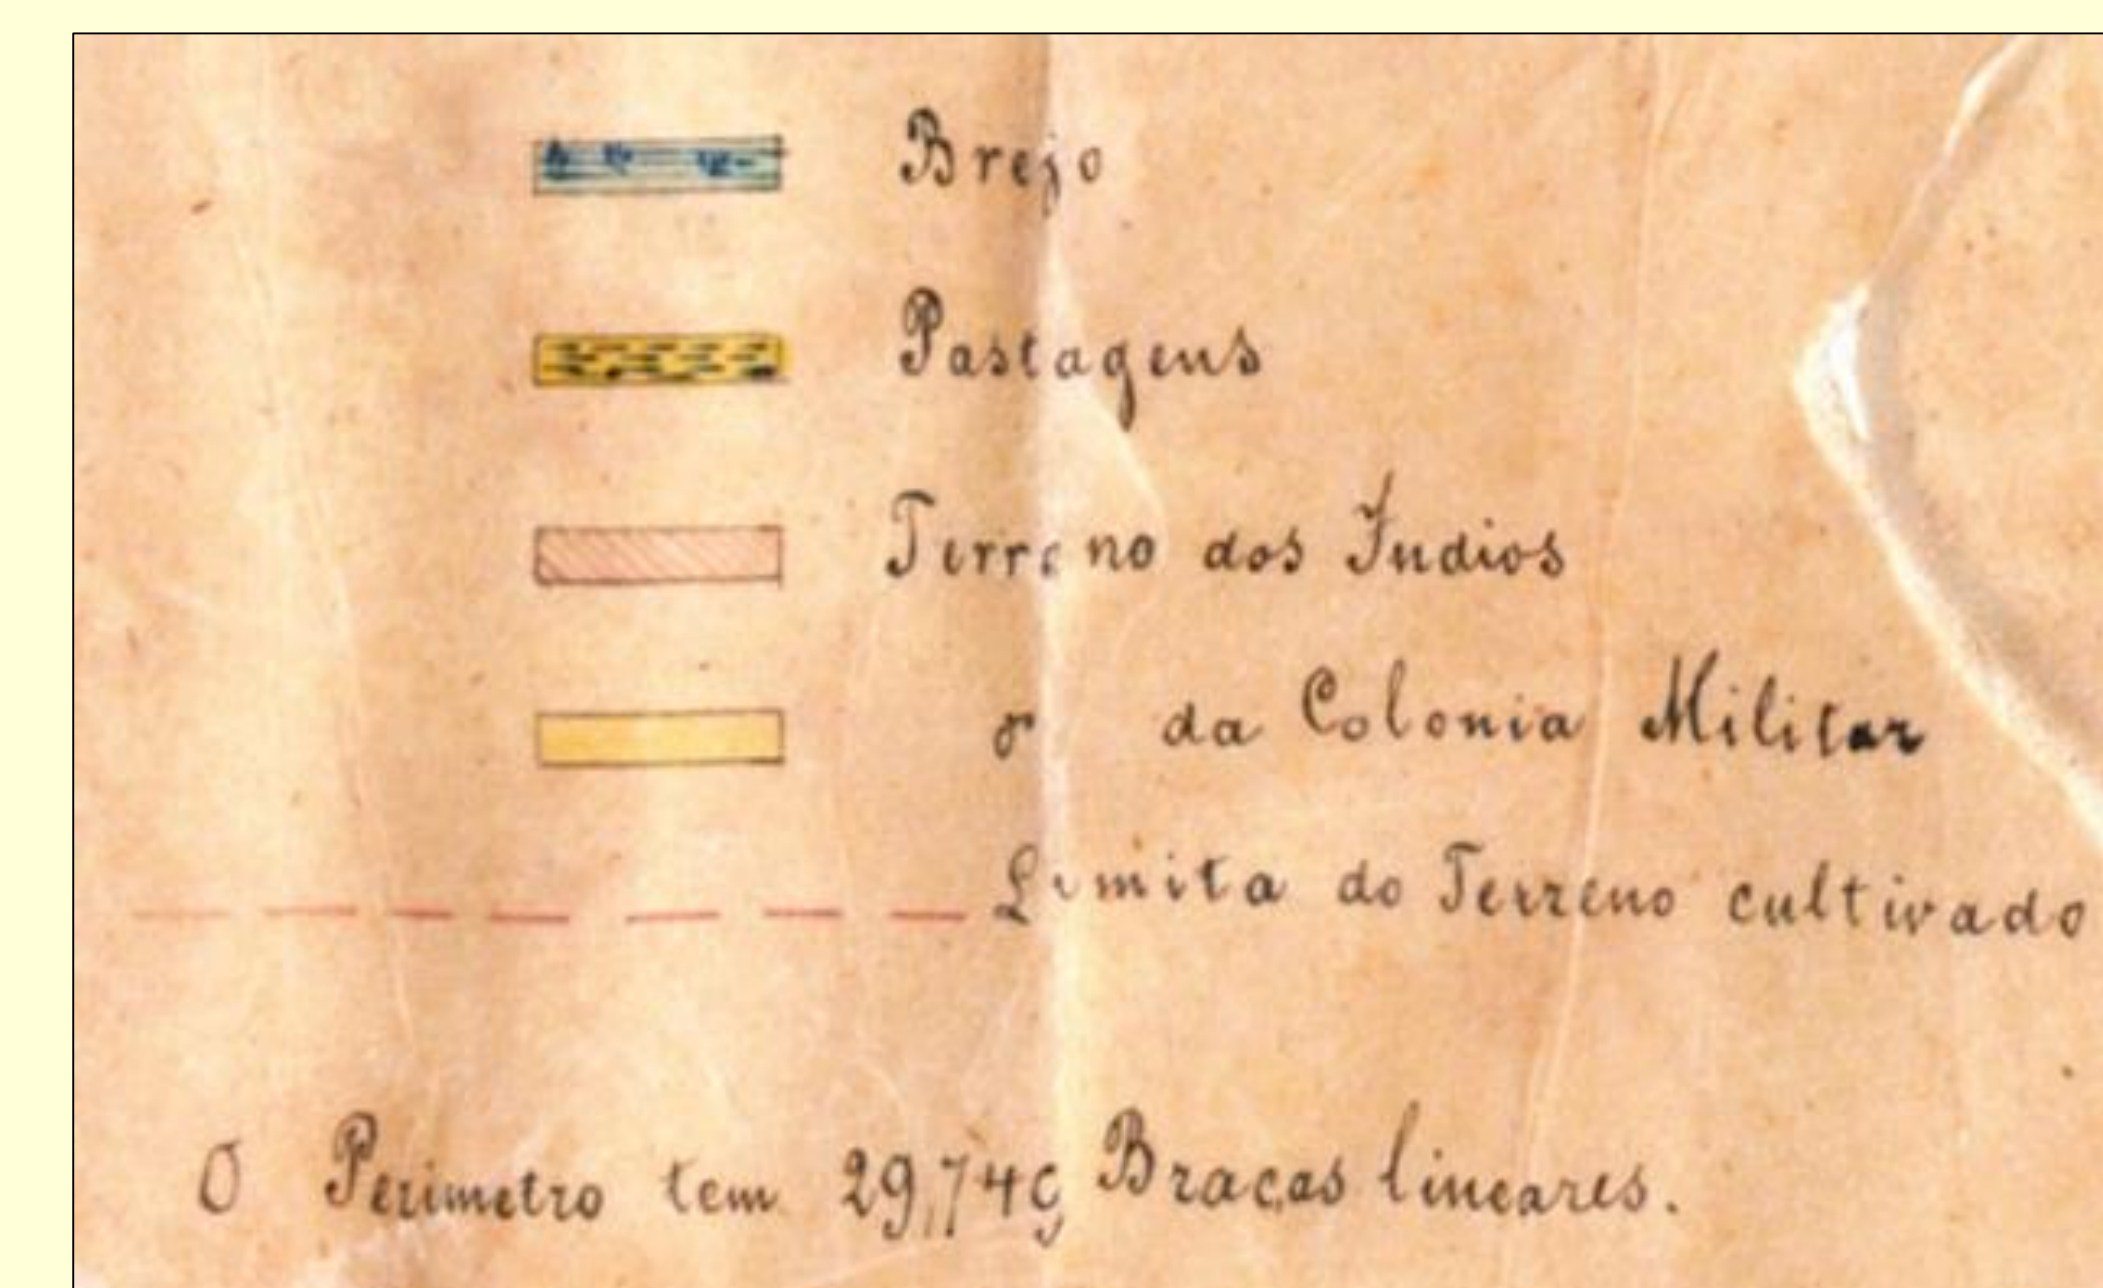 Brejo
Pastagens
Terreno dos Indios
" da Colonia Militar
Limita do Terreno cultivado
O Perimetro tem 29,749 Bracas lineares.